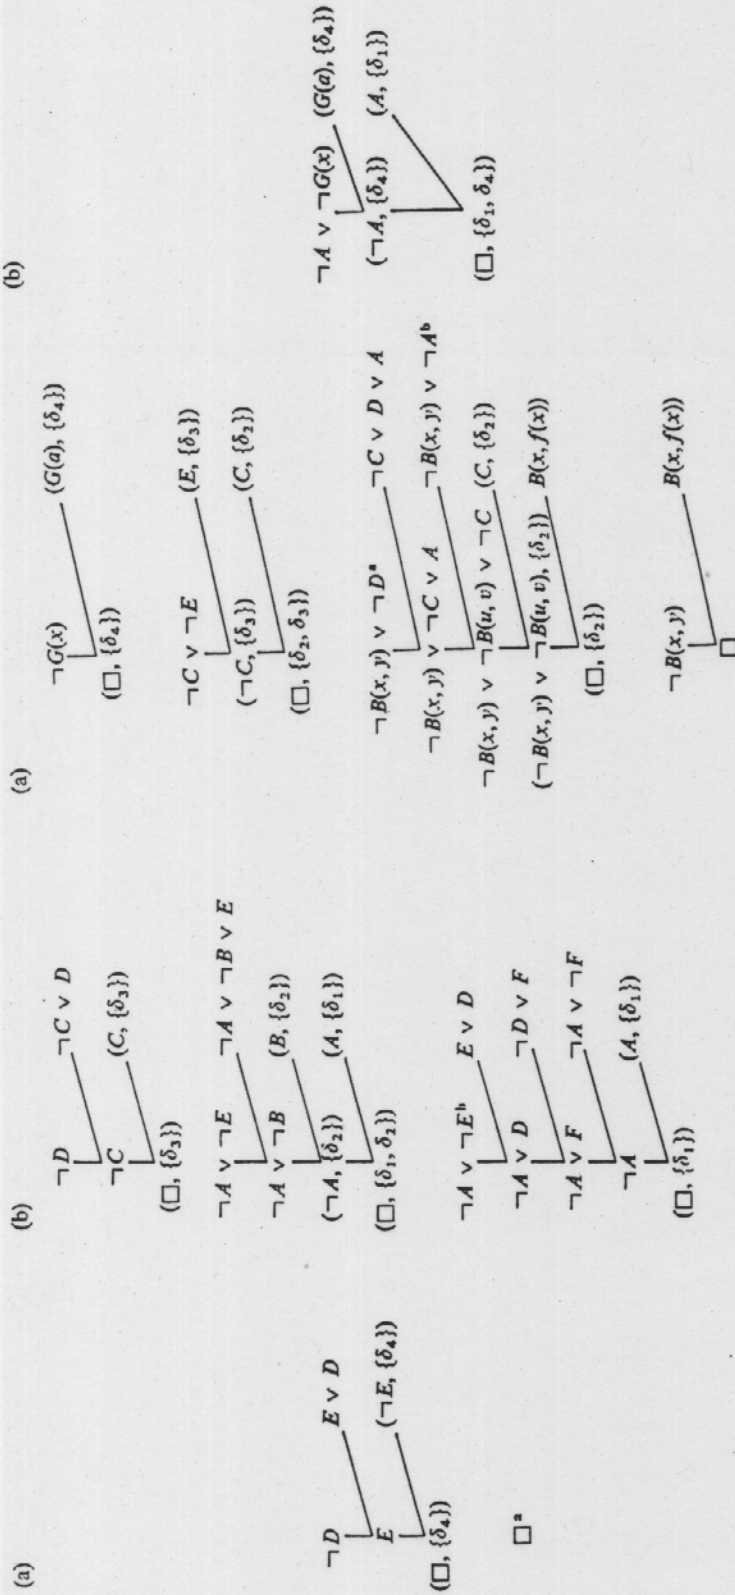 (a)
¬D E ∨ D
E (¬E, {δ₄})
(□, {δ₄})
□ᵃ
(b)
¬D ¬C ∨ D
¬C (C, {δ₃})
(□, {δ₃})
¬A ∨ ¬E ¬A ∨ ¬B ∨ E
¬A ∨ ¬B (B, {δ₂})
(¬A, {δ₂}) (A, {δ₁})
(□, {δ₁, δ₂})
¬A ∨ ¬Eᵇ E ∨ D
¬A ∨ D ¬D ∨ F
¬A ∨ F ¬A ∨ ¬F
¬A (A, {δ₁})
(□, {δ₁})
(a)
¬G(x) (G(a), {δ₄})
(□, {δ₄})
¬C ∨ ¬E (E, {δ₃})
(¬C, {δ₃}) (C, {δ₂})
(□, {δ₂, δ₃})
¬B(x, y) ∨ ¬Dᵃ ¬C ∨ D ∨ A
¬B(x, y) ∨ ¬C ∨ A ¬B(x, y) ∨ ¬Aᵇ
¬B(x, y) ∨ ¬B(u, v) ∨ ¬C (C, {δ₂})
(¬B(x, y) ∨ ¬B(u, v), {δ₂}) B(x, f(x))
(□, {δ₂})
¬B(x, y) B(x, f(x))
□
(b)
¬A ∨ ¬G(x) (G(a), {δ₄})
(¬A, {δ₄}) (A, {δ₁})
(□, {δ₁, δ₄})